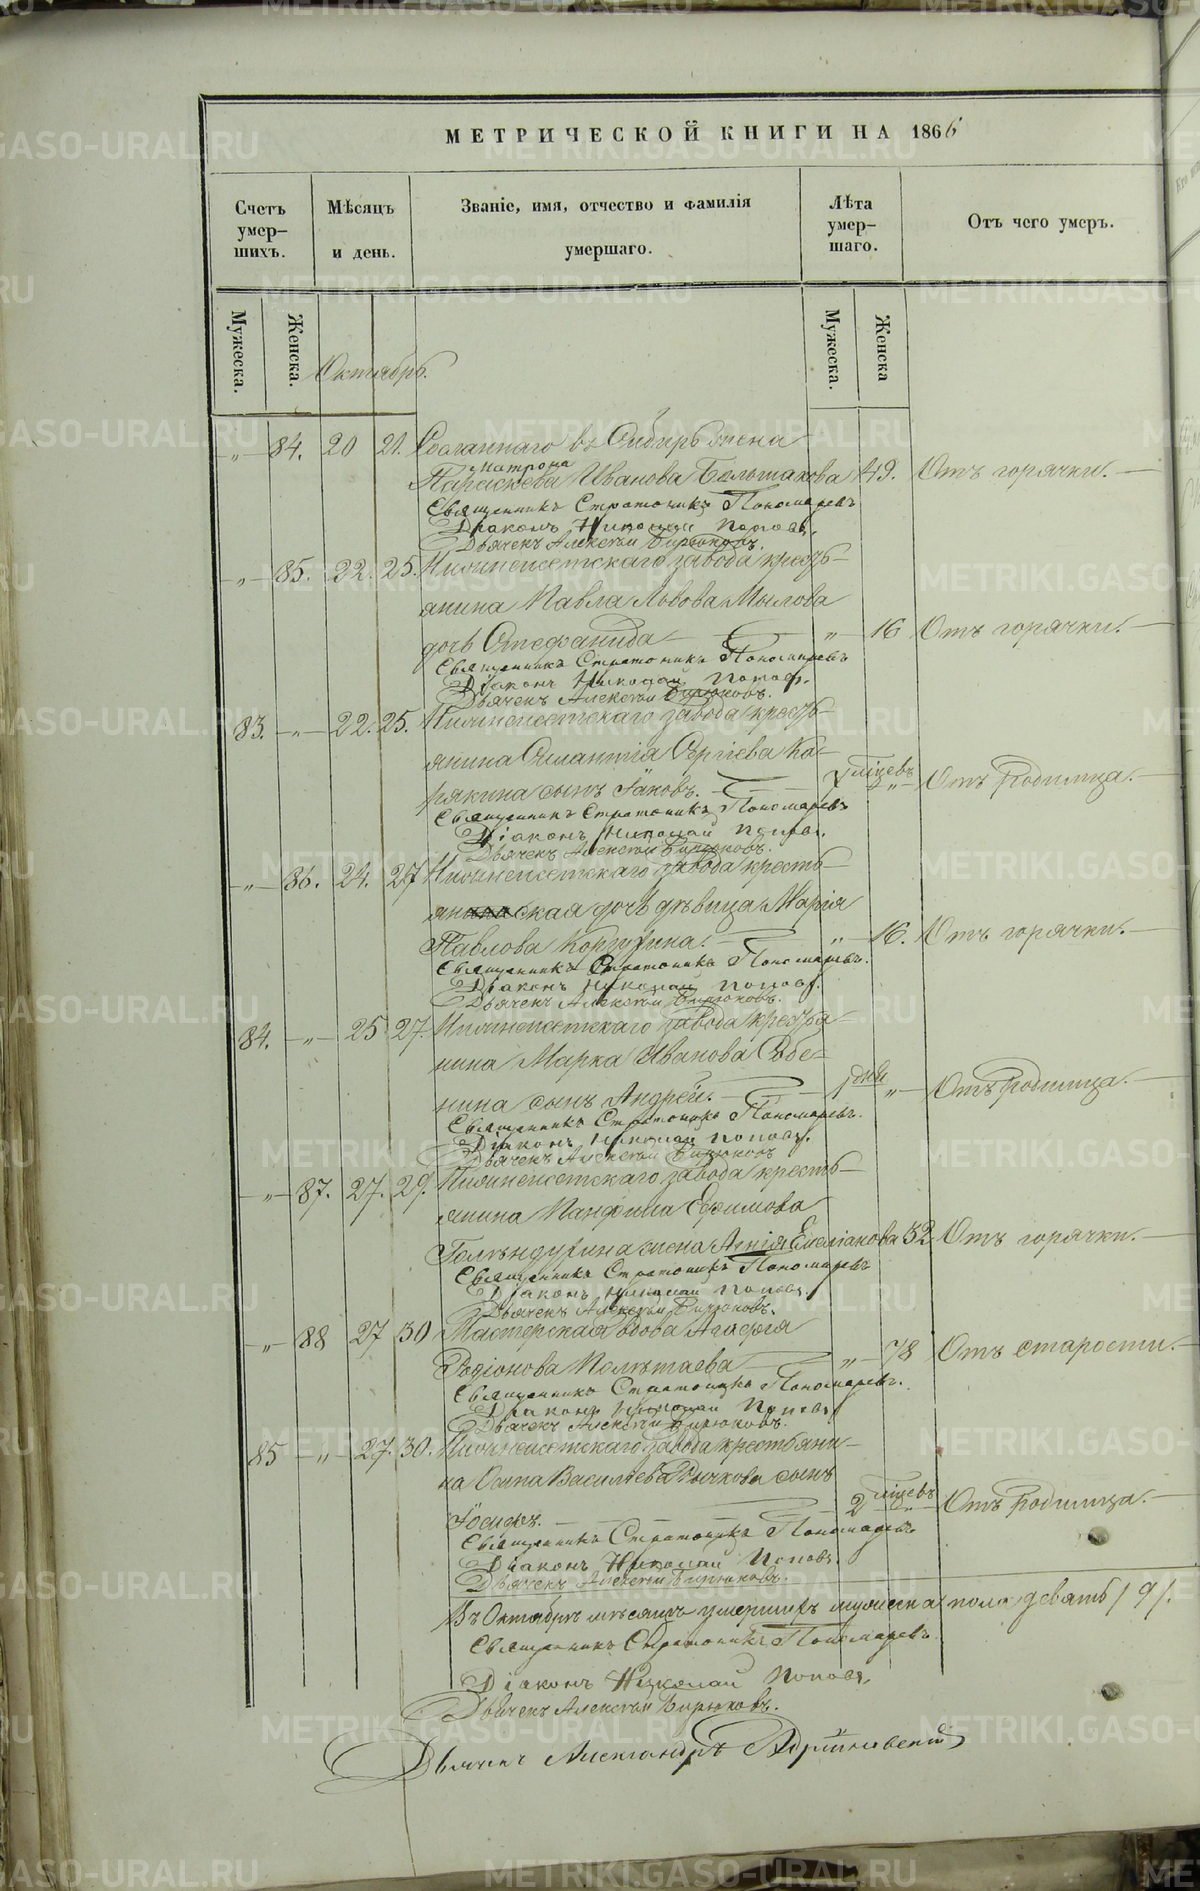 МЕТРИЧЕСКОЙ КНИГИ НА 1866
Счетъ умер- шихъ.
Мѣсяцъ и день.
Званіе, имя, отчество и фамилія умершаго.
Лѣта умер- шаго.
Отъ чего умеръ.
Мужеска. Женска. Мужеска. Женска
Октябрь.
„ 84. 20 21. Сосланнаго въ Сибирь жена
Матрона
Параскева Иванова Большакова 49. Отъ горячки.
Священникъ Стратоникъ Пономаревъ
Діаконъ Николай Поповъ.
Дьячекъ Алексѣй Бирюковъ.
„ 85. 22. 25. Нижнеисетскаго завода кресть-
янина Павла Львова Мылова
дочь Стефанида „ 16 Отъ горячки.
Священникъ Стратоникъ Пономаревъ
Діаконъ Николай Поповъ.
Дьячекъ Алексѣй Бирюковъ.
83. „ 22. 25. Нижнеисетскаго завода кресть-
янина Сергіева Ка-
рякина сынъ Іаковъ. мѣсяцевъ „ Отъ родимца.
Священникъ Стратоникъ Пономаревъ
Діаконъ Николай Поповъ.
Дьячекъ Алексѣй Бирюковъ.
„ 86. 24. 27 Нижнеисетскаго завода кресть-
янская дочь дѣвица Марія
Павлова „ 16. Отъ горячки.
Священникъ Стратоникъ Пономаревъ.
Діаконъ Николай Поповъ.
Дьячекъ Алексѣй Бирюковъ.
84. „ 25 27. Нижнеисетскаго завода крестья-
нина Марка Иванова Собе-
нина сынъ Андрей. 1 дни „ Отъ родимца.
Священникъ Стратоникъ Пономаревъ.
Діаконъ Николай Поповъ.
Дьячекъ Алексѣй Бирюковъ
„ 87. 27. 29. Нижнеисетскаго завода кресть-
янина Панфила Ефимова
Голендухина жена Агнія Емеліанова 32 Отъ горячки.
Священникъ Стратоникъ Пономаревъ
Діаконъ Николай Поповъ.
Дьячекъ Алексѣй Бирюковъ.
„ 88 27 30 Мастерская вдова Агафія
Родіонова Полѣтаева „ 78 Отъ старости.
Священникъ Стратоникъ Пономаревъ.
Діаконъ Николай Поповъ
Дьячекъ Алексѣй Бирюковъ.
85 „ 27. 30. Нижнеисетскаго завода крестьяни-
на Осипа Васильева Рычкова сынъ
Іосифъ. 2 мѣсяцевъ „ Отъ родимца.
Священникъ Стратоникъ Пономаревъ
Діаконъ Николай Поповъ.
Дьячекъ Алексѣй Бирюковъ.
Въ Октябрѣ мѣсяцѣ умершихъ мужеска пола девять /9/.
Священникъ Стратоникъ Пономаревъ
Діаконъ Николай Поповъ.
Дьячекъ Алексѣй Бирюковъ.
Дьячекъ Александръ Адріановскій
METRIKI.GASO-URAL.RU